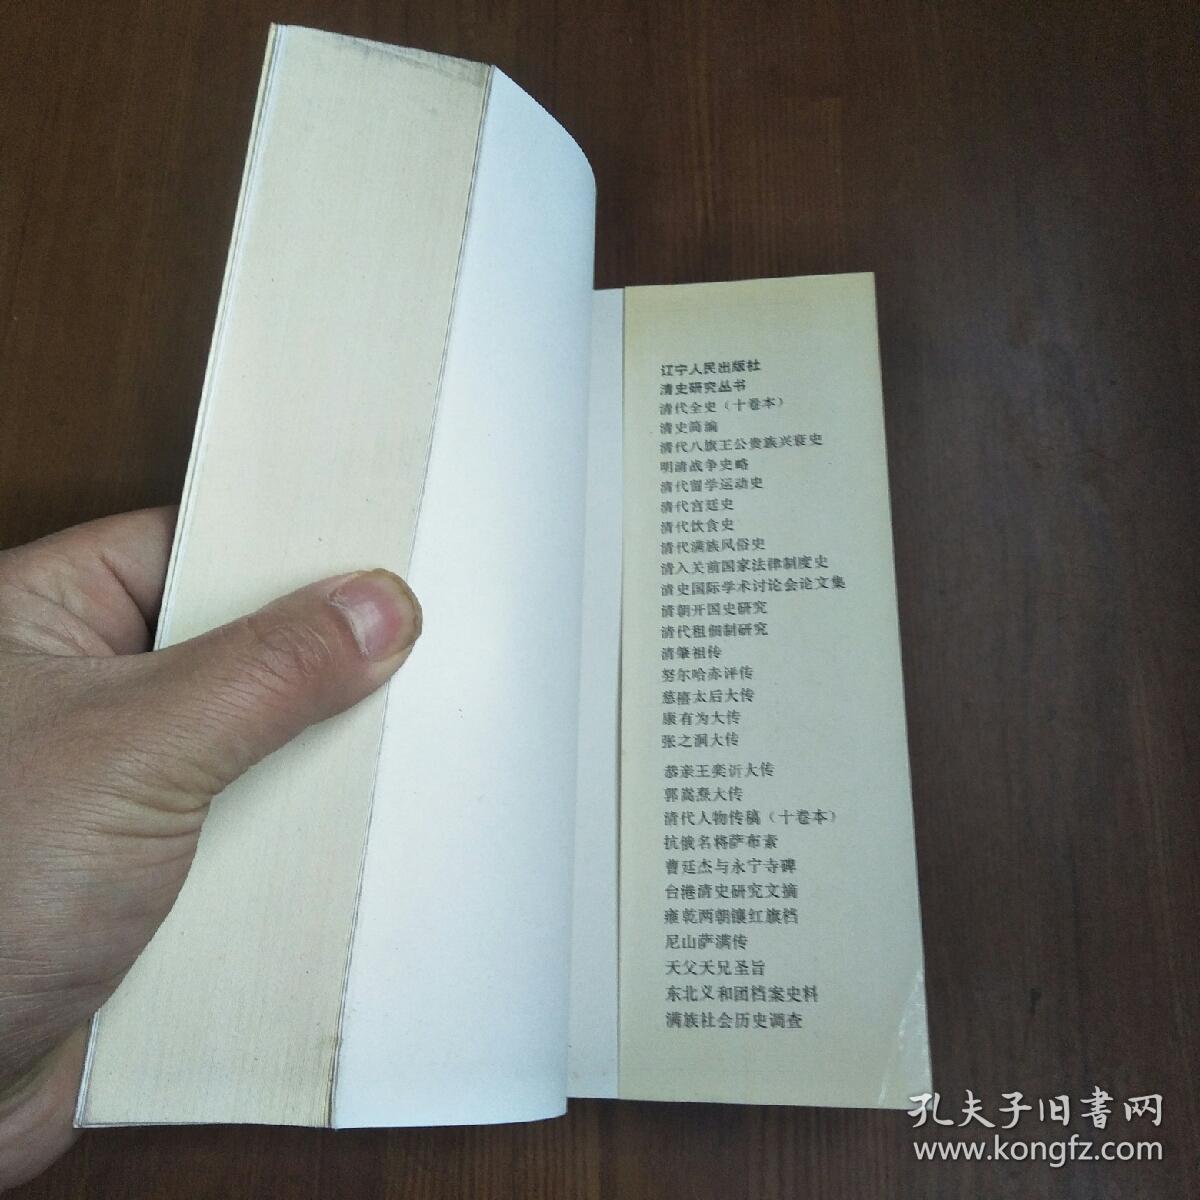 辽宁人民出版社
清史研究丛书
清代全史（十卷本）
清史简编
清代八旗王公贵族兴衰史
明清战争史略
清代留学运动史
清代宫廷史
清代饮食史
清代满族风俗史
清入关前国家法律制度史
清史国际学术讨论会论文集
清朝开国史研究
清代租佃制研究
清肇祖传
努尔哈赤评传
慈禧太后大传
康有为大传
张之洞大传
恭亲王奕䜣大传
郭嵩焘大传
清代人物传稿（十卷本）
抗俄名将萨布素
曹廷杰与永宁寺碑
台港清史研究文摘
雍乾两朝镶红旗档
尼山萨满传
天父天兄圣旨
东北义和团档案史料
满族社会历史调查
孔夫子旧書网
www.kongfz.com